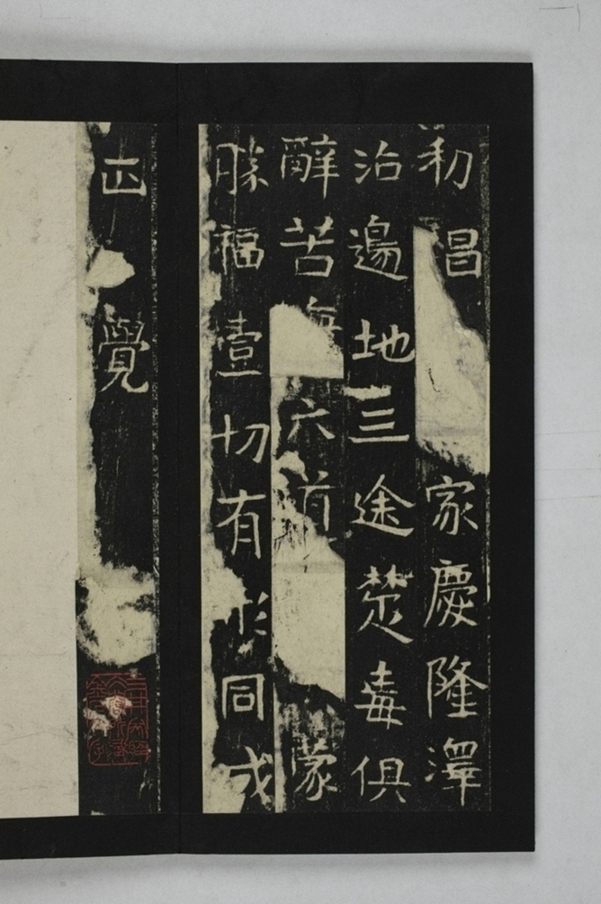 初昌家慶隆澤
洽邊地三途楚毒俱
辭苦海六道蒙
勝福壹切有形同成
正覺